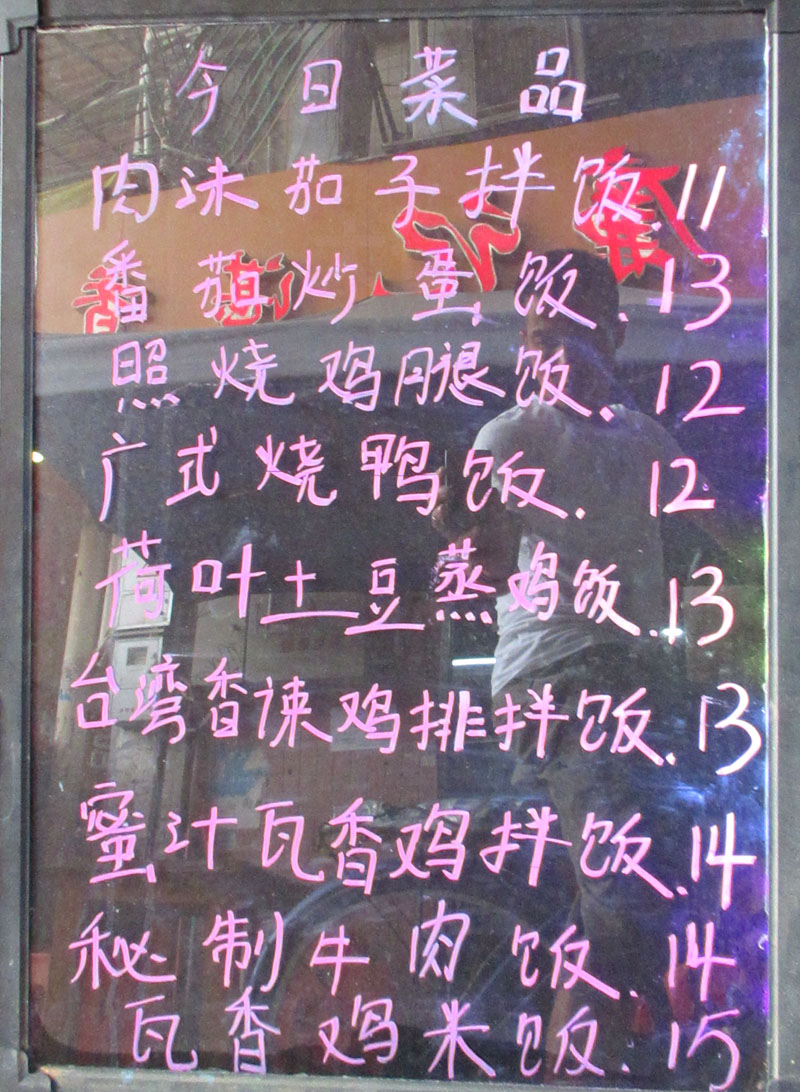 今日菜品
肉沫茄子拌饭.11
番茄炒蛋饭.13
照烧鸡腿饭.12
广式烧鸭饭.12
荷叶土豆蒸鸡饭.13
台湾香辣鸡排拌饭.13
蜜汁瓦香鸡拌饭.14
秘制牛肉饭.14
瓦香鸡米饭.15